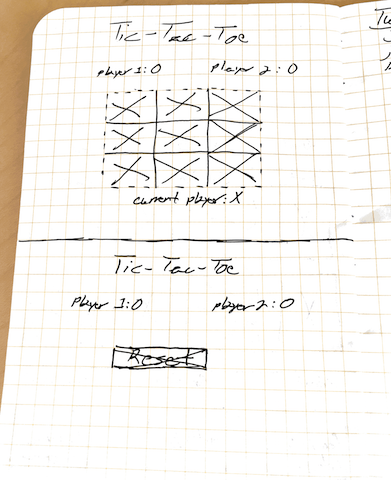 Tic-Tac-Toe
player 1:0 player 2:0
X X X
X X X
X X X
current player: X
Tic-Tac-Toe
player 1:0 player 2:0
Reset